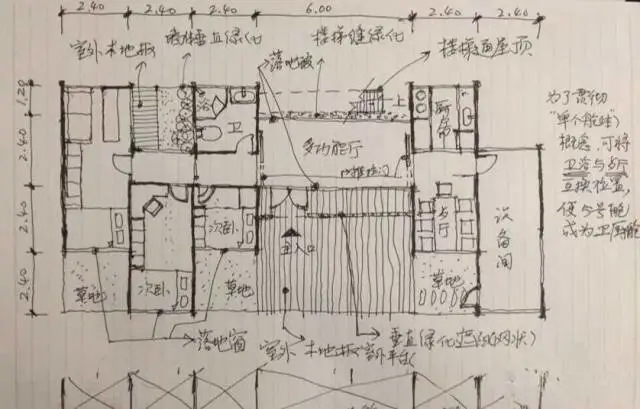 2.40 2.40 2.40 6.00 2.40 2.40
室外木地板
垂直绿化
落地玻
楼梯缝绿化
楼梯通屋顶
1.20
2.40
2.40
2.40
卫
上
厨房
多功能厅
推拉门
次卧
次卧
主入口
客厅
设备间
草地
草地
草地
落地窗
室外木地板(室外平台)
垂直绿化
网状)
为了贯彻
"单个舱块)
概念,可将
卫浴与客厅
互换位置,
使5号舱
成为卫厨舱